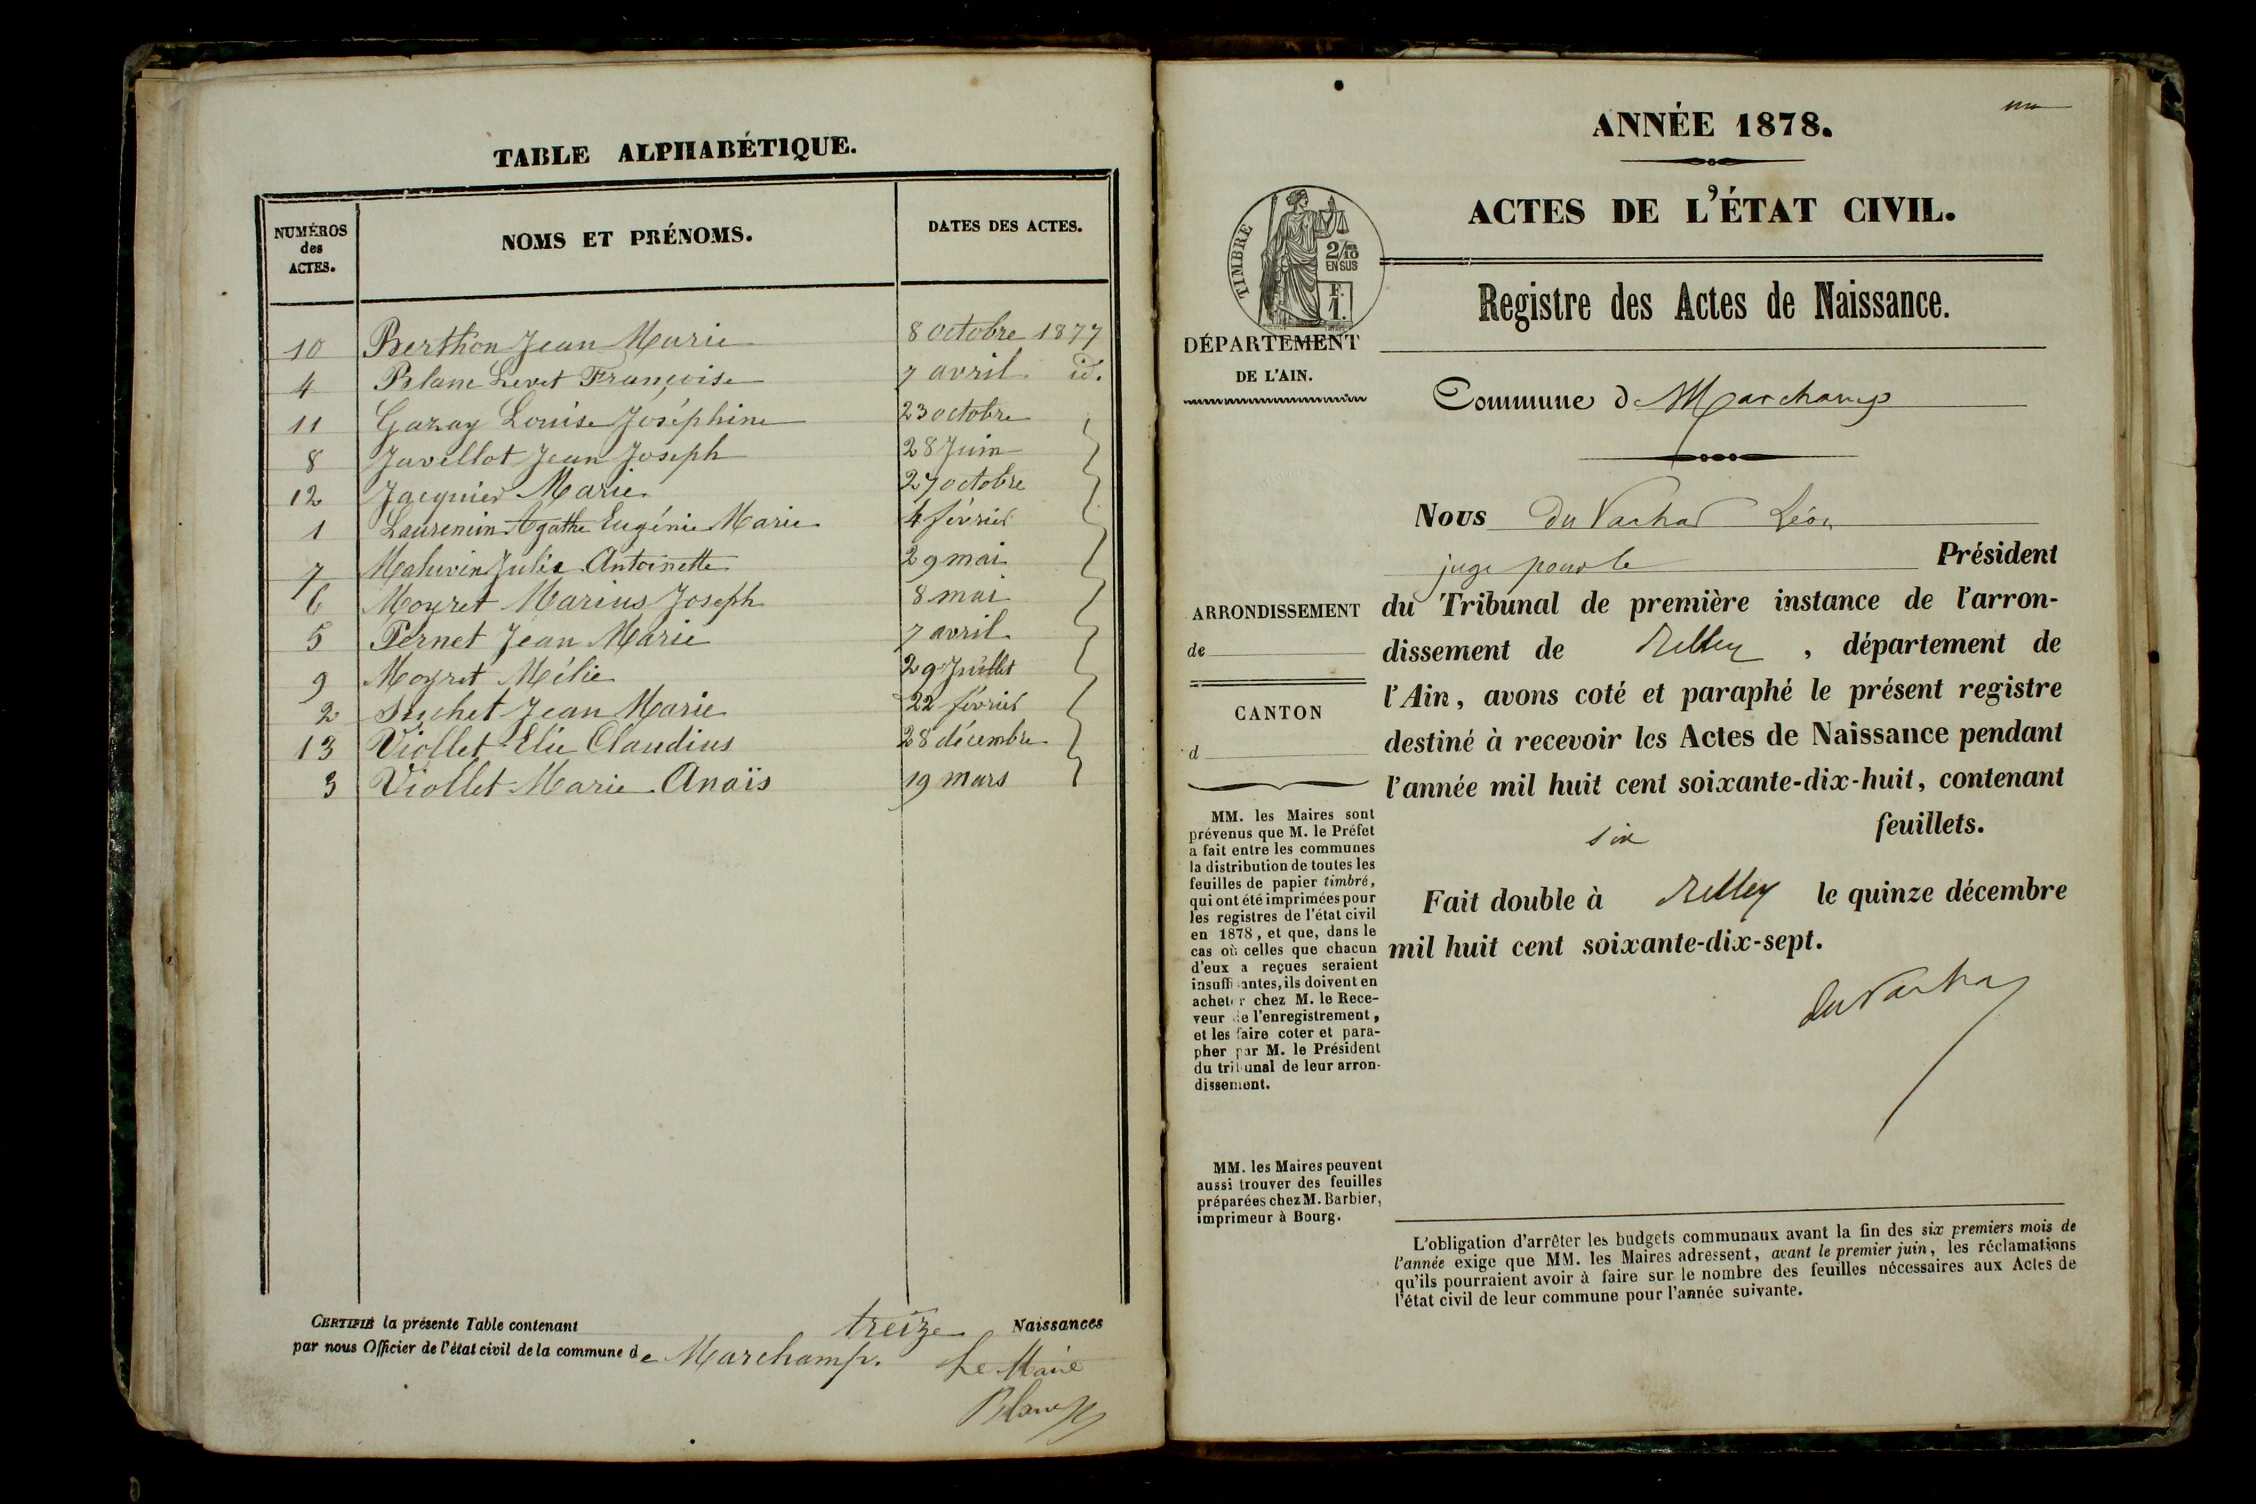 TABLE ALPHABÉTIQUE.
NUMÉROS
des
ACTES.
NOMS ET PRÉNOMS.
DATES DES ACTES.
10 Berthon Jean Marie 8 octobre 1877
4 Blanc Levet Françoise 7 avril id.
11 Gazay Louise Joséphine 23 octobre
8 Javellot Jean Joseph 28 Juin
12 Jacquier Marie 27 octobre
1 Laurencin Agathe Eugénie Marie 4 février
7 Maluvin Julie Antoinette 29 mai
6 Moyret Marius Joseph 8 mai
5 Pernet Jean Marie 7 avril
9 Moyret Mélie 29 Juillet
2 Suchet Jean Marie 22 février
13 Viollet Elie Claudius 28 décembre
3 Viollet Marie Anaïs 19 mars
CERTIFIÉ la présente Table contenant treize Naissances
par nous Officier de l'état civil de la commune de Marchamp.
Le Maire
Blanc
un
ANNÉE 1878.
ACTES DE L'ÉTAT CIVIL.
TIMBRE
2/10
EN SUS
F.
1.
Registre des Actes de Naissance.
DÉPARTEMENT
DE L'AIN.
Commune de Marchamp
Nous du Vachat Léon
juge pour le Président
du Tribunal de première instance de l'arron-
dissement de Belley, département de
l'Ain, avons coté et paraphé le présent registre
destiné à recevoir les Actes de Naissance pendant
l'année mil huit cent soixante-dix-huit, contenant
six feuillets.
Fait double à Belley le quinze décembre
mil huit cent soixante-dix-sept.
du Vachat
ARRONDISSEMENT
de
CANTON
d
MM. les Maires sont
prévenus que M. le Préfet
a fait entre les communes
la distribution de toutes les
feuilles de papier timbré,
qui ont été imprimées pour
les registres de l'état civil
en 1878, et que, dans le
cas où celles que chacun
d'eux a reçues seraient
insuffisantes, ils doivent en
acheter chez M. le Rece-
veur de l'enregistrement,
et les faire coter et para-
pher par M. le Président
du tribunal de leur arron-
dissement.
MM. les Maires peuvent
aussi trouver des feuilles
préparées chez M. Barbier,
imprimeur à Bourg.
L'obligation d'arrêter les budgets communaux avant la fin des six premiers mois de
l'année exige que MM. les Maires adressent, avant le premier juin, les réclamations
qu'ils pourraient avoir à faire sur le nombre des feuilles nécessaires aux Actes de
l'état civil de leur commune pour l'année suivante.